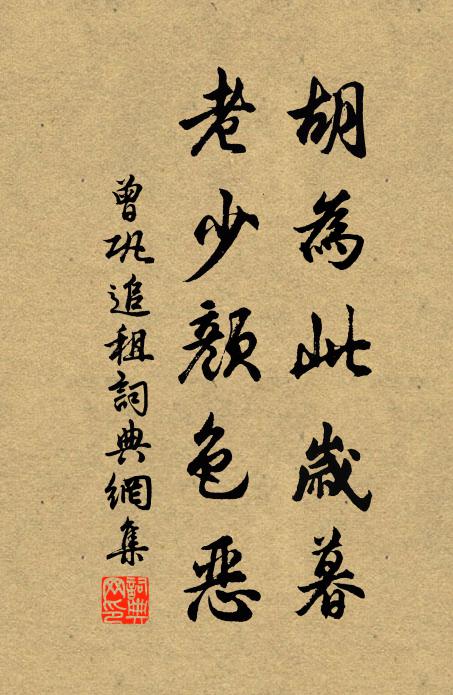 胡為此歲暮
老少顏色惡
曾巩追租詞典網集
詞典網印